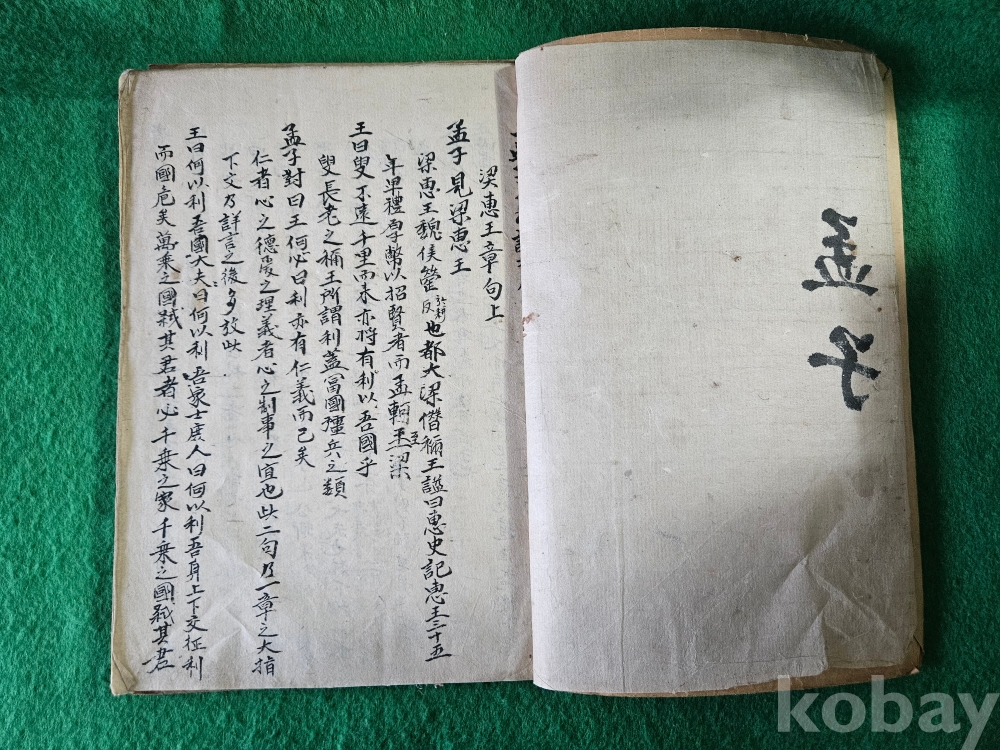 孟子
梁恵王章句上
孟子見梁恵王
梁恵王魏侯罃於耕反也都大梁僭稱王謚曰恵史記恵王三十五
年卑禮厚幣以招賢者而孟軻至梁
王曰叟不遠千里而来亦将有利以吾國乎
叟長老之稱王所謂利蓋富國彊兵之類
孟子對曰王何必曰利亦有仁義而已矣
仁者心之德愛之理義者心之制事之宜也此二句乃一章之大指
下文乃詳言之後多放此
王曰何以利吾國大夫曰何以利吾家士庶人曰何以利吾身上下交征利
而國危矣萬乘之國弑其君者必千乘之家千乘之國弑其君
kobay